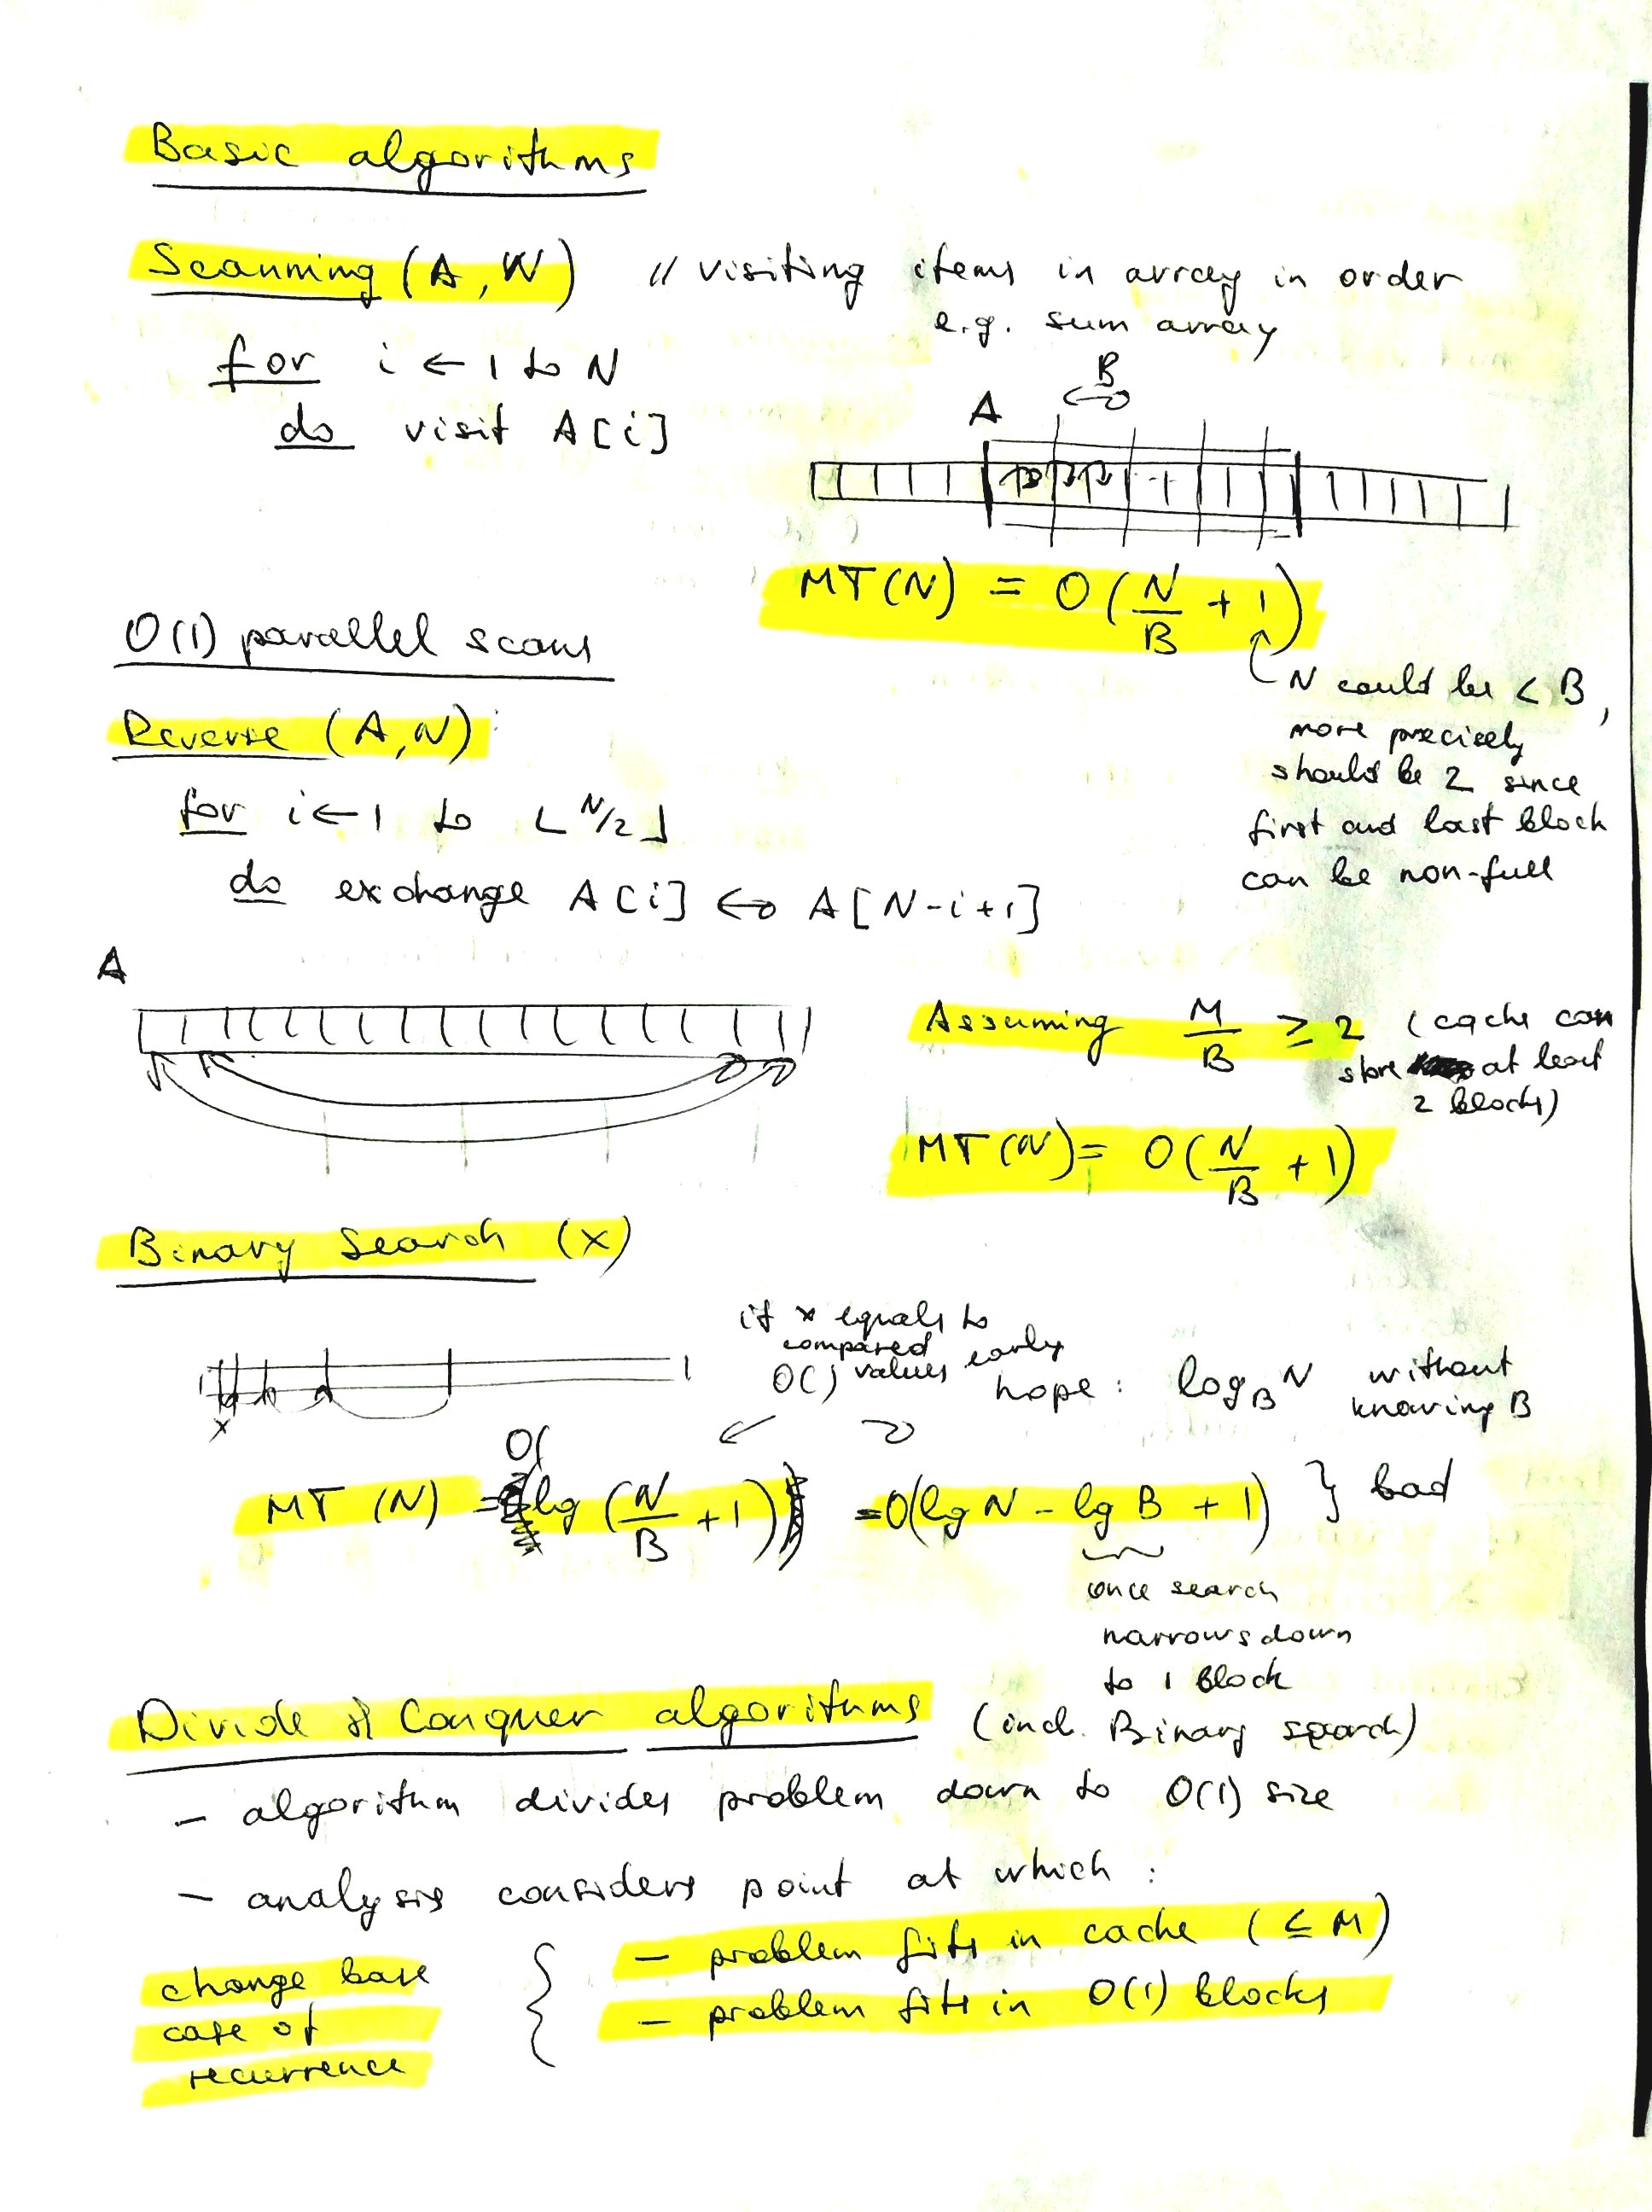 Basic algorithms
Scanning (A, N) // visiting items in array in order
e.g. sum array
for i ← 1 to N
do visit A[i]
B
A
MT(N) = O(N/B + 1)
O(1) parallel scans
N could be < B,
more precisely
should be 2 since
first and last block
can be non-full
Reverse (A,N)
for i ← 1 to ⌊N/2⌋
do exchange A[i] ↔ A[N-i+1]
A
Assuming M/B ≥ 2 (cache can
store at least
2 blocks)
MT(N) = O(N/B + 1)
Binary Search (x)
if x equals to
compared
O() values early
hope: log_B N without
knowing B
x
MT (N) = O(lg (N/B + 1)) = O(lg N - lg B + 1) } bad
once search
narrows down
to 1 block
Divide & Conquer algorithms (incl. Binary search)
- algorithm divides problem down to O(1) size
- analysis considers point at which :
- problem fits in cache (≤ M)
- problem fits in O(1) blocks
change base
case of
recurrence